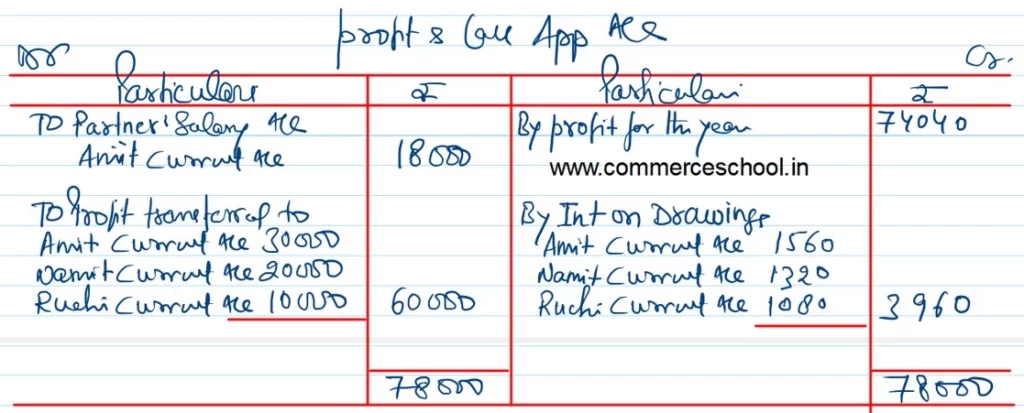 profit & loss App A/c
Dr Cr.
Particulars ₹ Particulars ₹
TO Partner's Salary A/c By profit for the year 74040
Amit Current A/c 18000 www.commerceschool.in
TO Profit transferred to By Int on Drawings
Amit Current A/c 30000 Amit Current A/c 1560
Namit Current A/c 20000 Namit Current A/c 1320
Ruchi Current A/c 10000 60000 Ruchi Current A/c 1080 3960
78000 78000